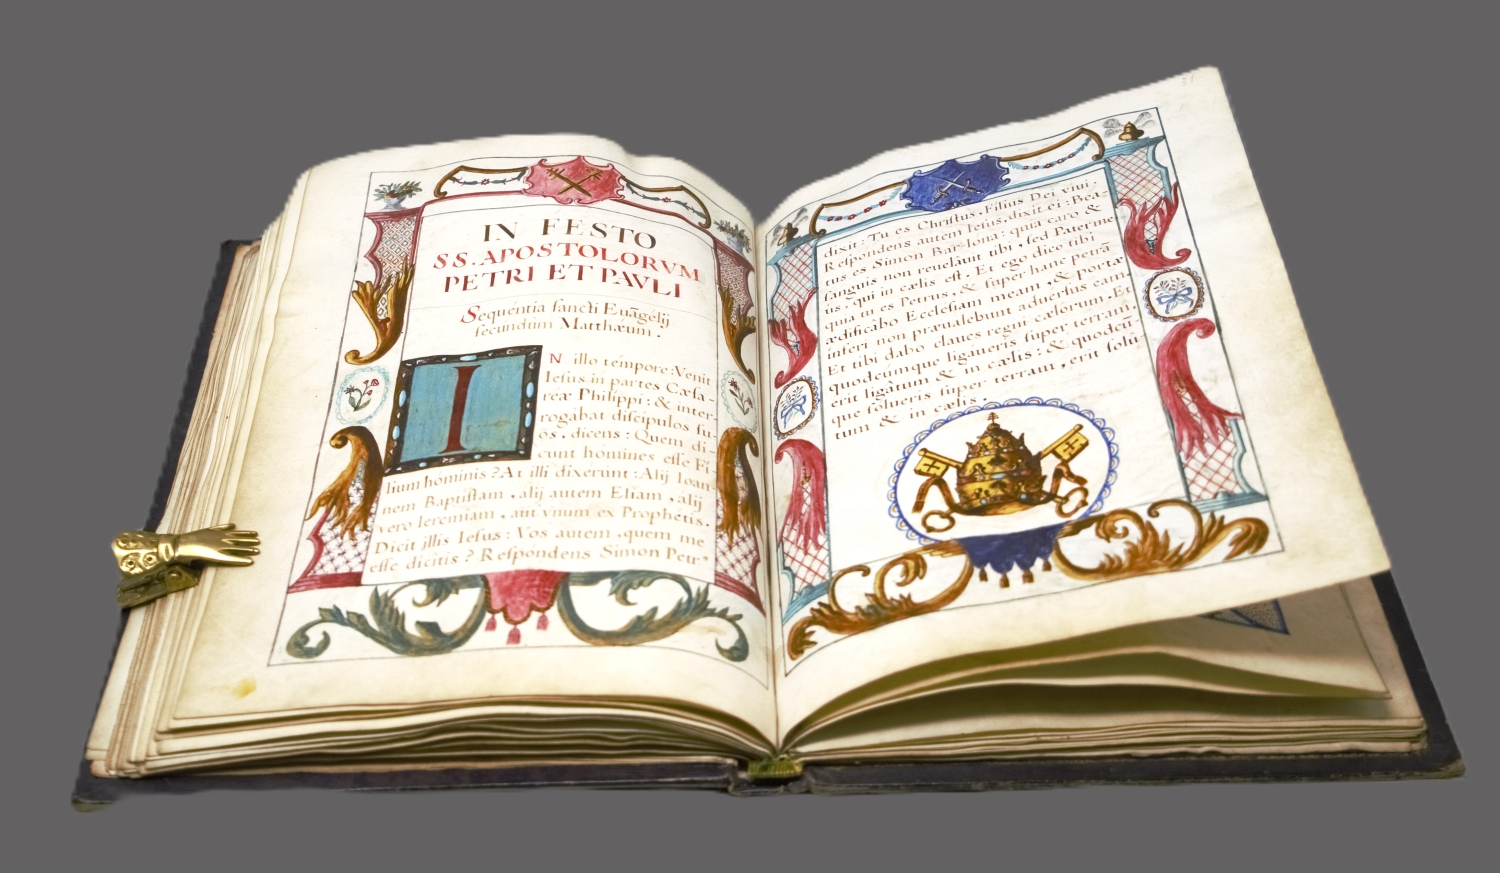 IN FESTO
SS. APOSTOLORVM
PETRI ET PAVLI
Sequentia sancti Euāgélij
secundùm Matthæum.
IN illo témpore: Venit
Iesus in partes Cæsa-
reæ Philippi: & inter-
rogábat discípulos su-
os, dicens: Quem di-
cunt hómines esse Fí-
lium hóminis? At illi dixérunt: Alij Ioan-
nem Baptístam, alij autem Elíam, alij
vero Ieremíam, aut vnum ex Prophétis.
Dicit illis Iesus: Vos autem, quem me
esse dícitis? Respóndens Simon Petr9
dixit: Tu es Christus, Fílius Dei viui.
Respóndens autem Iesus, dixit ei: Beá-
tus es Simon Bar-Iona: quia caro &
sanguis non reuelâuit tibi, sed Pater me-
us, qui in cælis est. Et ego dico tibi,
quia tu es Petrus, & super hanc petrā
ædificábo Ecclésiam meam, & portæ
ínferi non præualébunt aduérsus eam.
Et tibi dabo claues regni cælórum. Et
quodcúmque ligáueris super terram,
erit ligátum & in cælis: & quodcū-
que sólueris super terram, erit solú-
tum & in cælis.